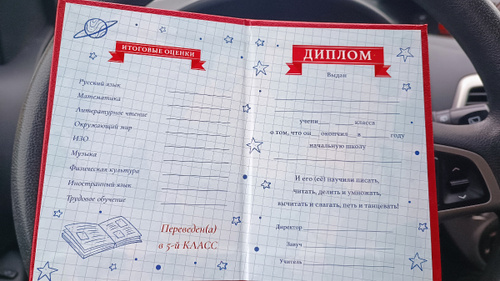 ИТОГОВЫЕ ОЦЕНКИ
Русский язык
Математика
Литературное чтение
Окружающий мир
ИЗО
Музыка
Физическая культура
Иностранный язык
Трудовое обучение
Переведен(а)
в 5-й КЛАСС
ДИПЛОМ
Выдан
учени класса
о том, что он окончил в году
начальную школу
И его (её) научили писать,
читать, делить и умножать,
вычитать и слагать, петь и танцевать!
Директор
Завуч
Учитель